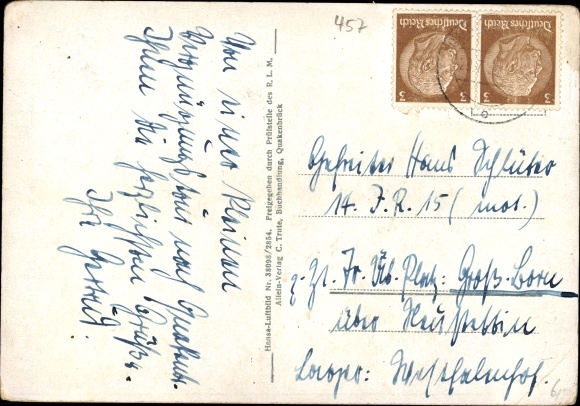 457
Deutsches Reich
3
3
Deutsches Reich
3
3
Von einer kleinen
Vergnügungstour nach Quakenbr.
Ihnen die herzlichsten Grüße.
Ihr Gerhard.
Hansa-Luftbild Nr. 38098/2854. Freigegeben durch Prüfstelle des R. L. M.
Allein-Verlag C. Trute, Buchhandlung, Quakenbrück
Gefreiter Hans Schlüter
14. J.R. 15 (mot.)
z. Zt. Tr. Üb. Platz: Groß-Born
über Neustettin
Lager: Westfalenhof.